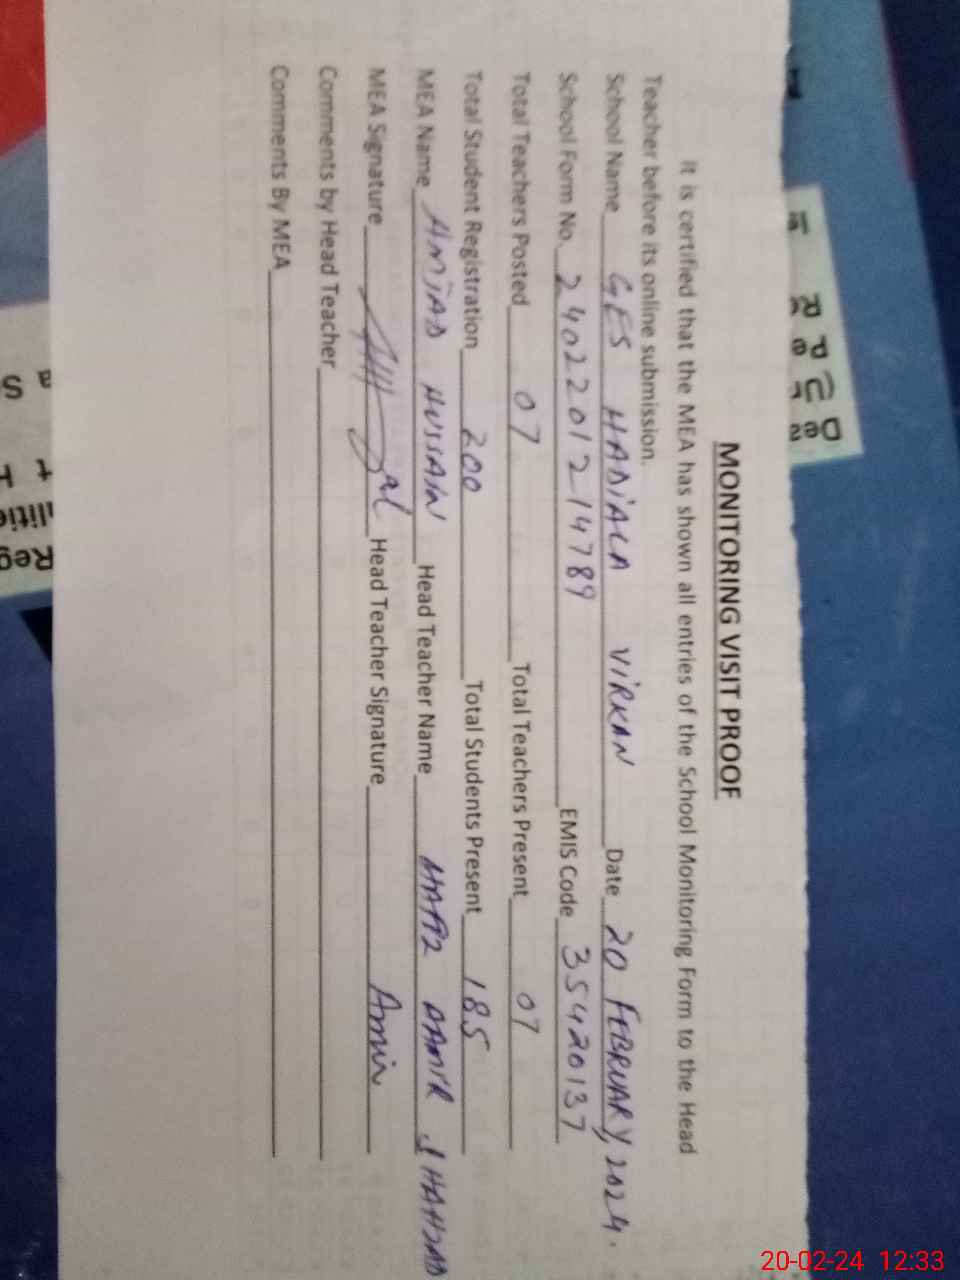 MONITORING VISIT PROOF
It is certified that the MEA has shown all entries of the School Monitoring Form to the Head
Teacher before its online submission.
School Name GES HADiALA ViRKAN Date 20 FEBRUARY, 2024.
School Form No. 2402201214789 EMIS Code 35420137
Total Teachers Posted 07 Total Teachers Present 07
Total Student Registration 200 Total Students Present 185
MEA Name AMJAD HUSSAIN Head Teacher Name AAMIR SHAHZAD
MEA Signature Head Teacher Signature Amir
Comments by Head Teacher
Comments By MEA
20-02-24 12:33